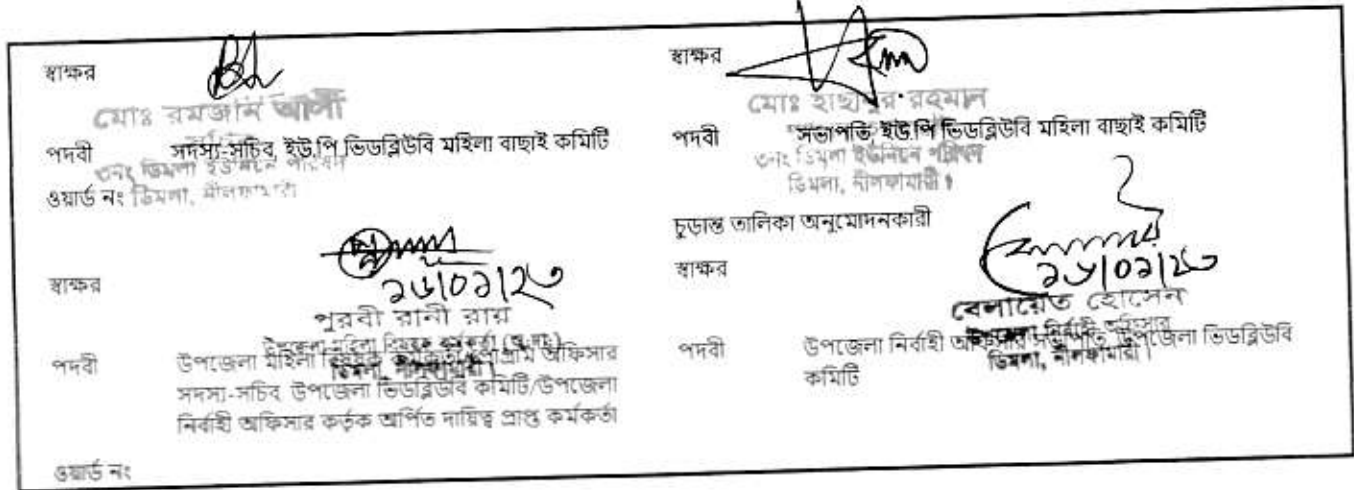 স্বাক্ষর
মোঃ রমজান আলী
পদবী সদস্য-সচিব, ইউ,পি ভিডব্লিউবি মহিলা বাছাই কমিটি
৩নং ডিমলা ইউনিয়ন পরিষদ
ওয়ার্ড নং ডিমলা, নীলফামারী
স্বাক্ষর
২৬/০১/২৩
পুরবী রানী রায়
উপজেলা মহিলা বিষয়ক কর্মকর্তা
ডিমলা, নীলফামারী।
পদবী উপজেলা মহিলা বিষয়ক প্রোগ্রাম অফিসার
সদস্য-সচিব উপজেলা ভিডব্লিউবি কমিটি/উপজেলা
নির্বাহী অফিসার কর্তৃক অর্পিত দায়িত্ব প্রাপ্ত কর্মকর্তা
ওয়ার্ড নং
স্বাক্ষর
মোঃ রহমান
পদবী সভাপতি, ইউ,পি ভিডব্লিউবি মহিলা বাছাই কমিটি
৩নং ডিমলা ইউনিয়ন পরিষদ
ডিমলা, নীলফামারী।
চুড়ান্ত তালিকা অনুমোদনকারী
স্বাক্ষর
২৬/০১/২৩
বেলায়েত হোসেন
উপজেলা নির্বাহী অফিসার
ডিমলা, নীলফামারী।
পদবী উপজেলা নির্বাহী অফিসার সভাপতি, উপজেলা ভিডব্লিউবি
কমিটি